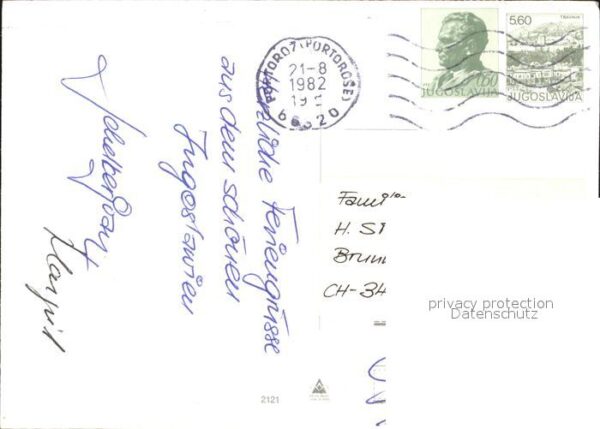 PORTOROŽ (PORTOROSE)
21-8
1982
66320
JUGOSLAVIJA
5,60
TRAVNIK
JUGOSLAVIJA
Herzliche Feriengrüsse
aus dem schönen
Jugoslawien
Famil
H. St
Brun
CH-34
privacy protection
Datenschutz
2121